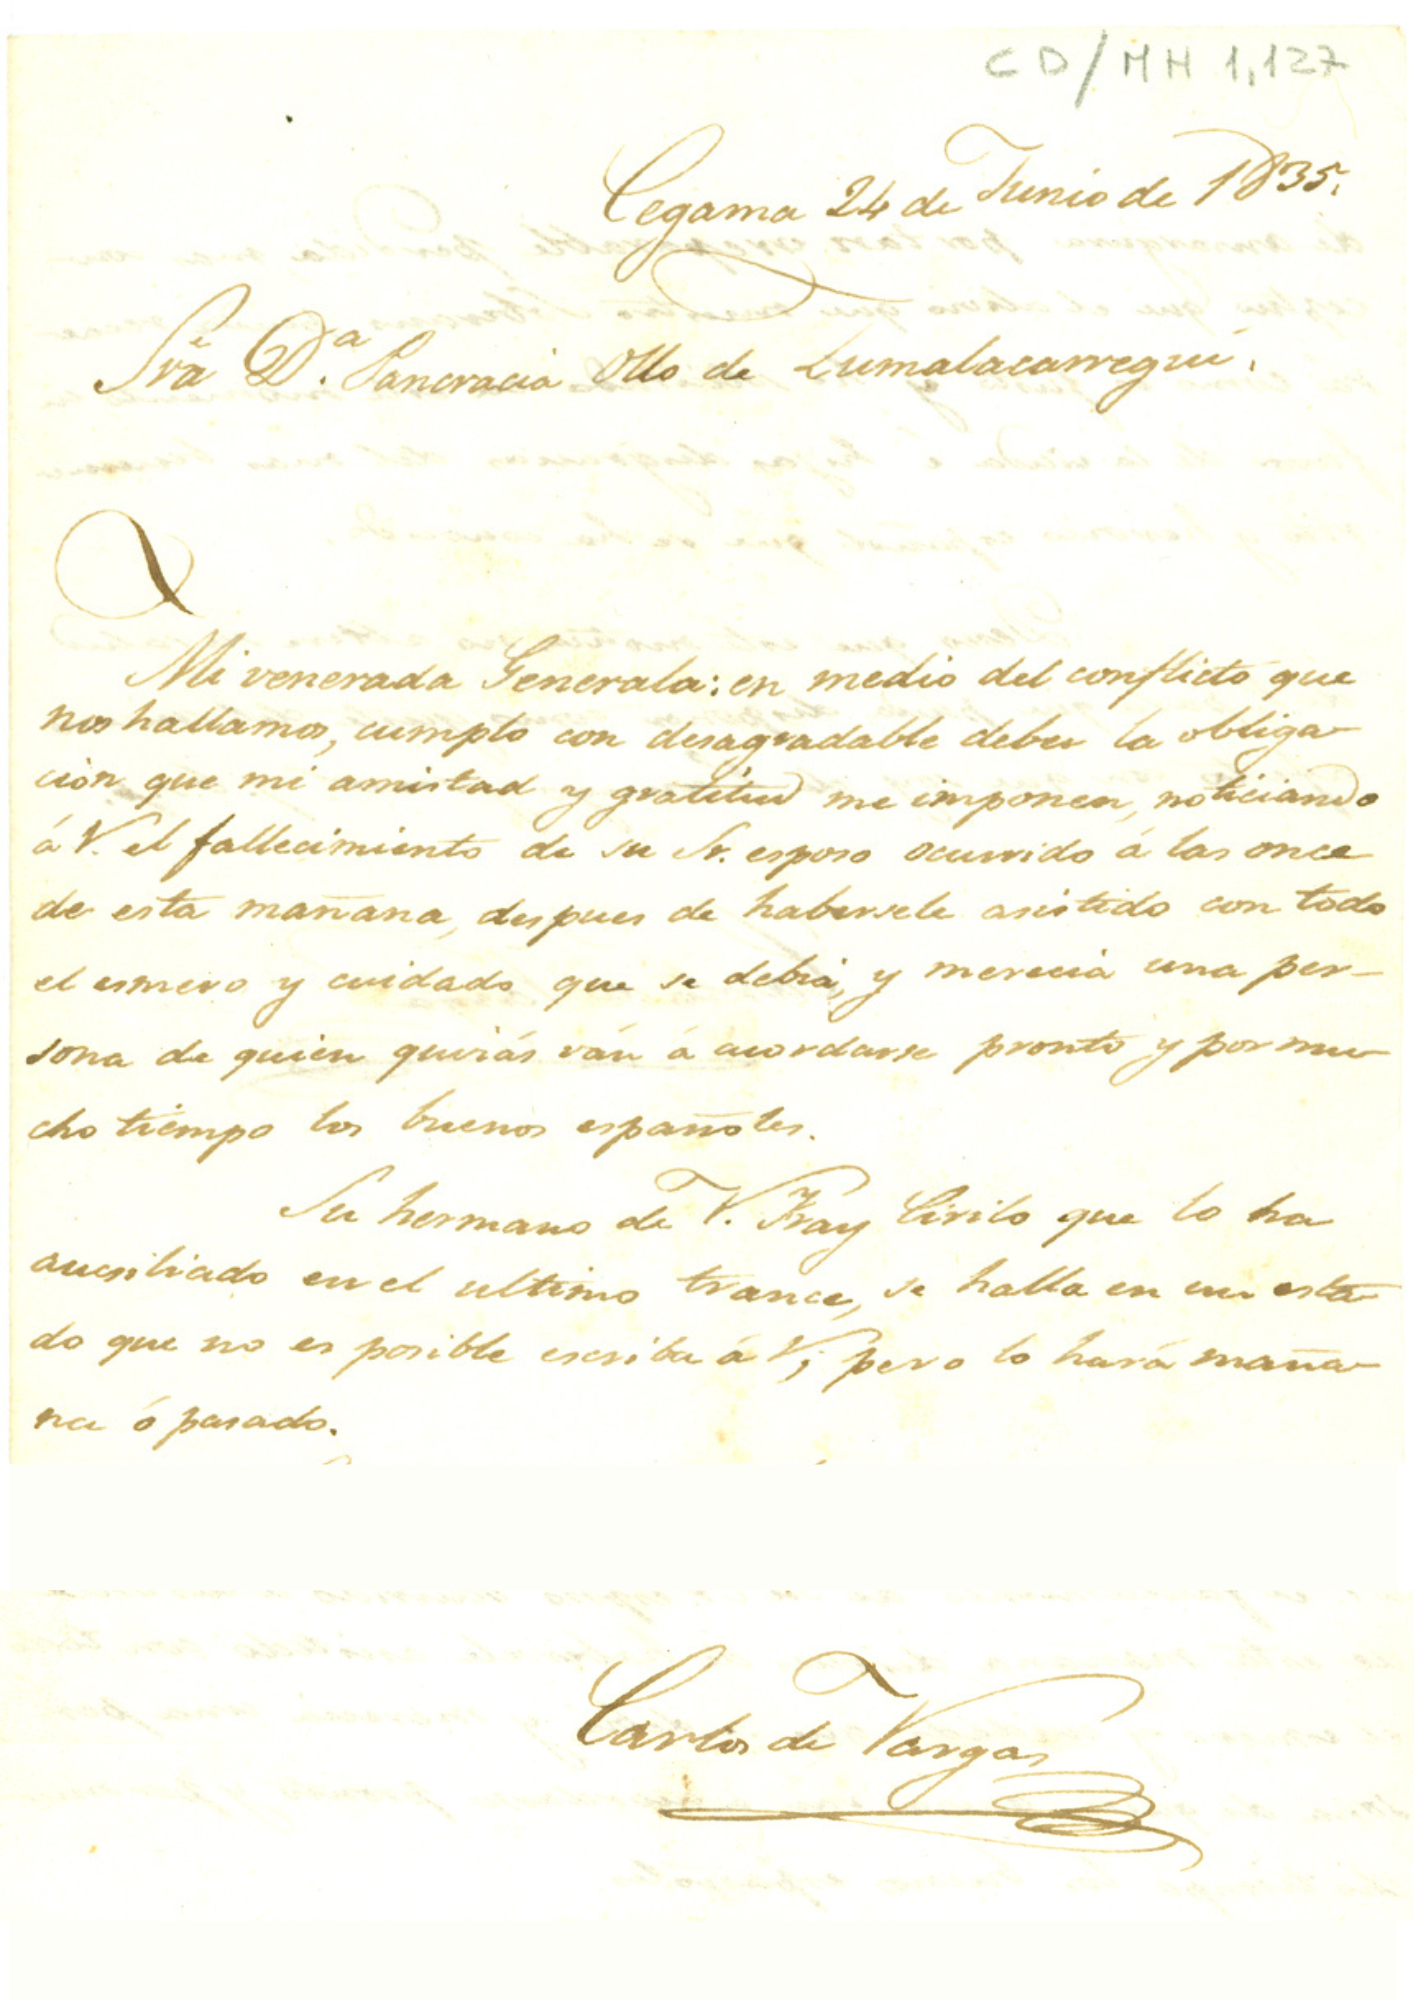 CD/MH 1,127
Cegama 24 de Junio de 1835.
Sra. Dª. Pancracia Ollo de Zumalacarregui.
Mi venerada Generala: en medio del conflicto que
nos hallamos, cumplo con desagradable deber la obliga-
cion que mi amistad y gratitud me imponen, noticiando
á V. el fallecimiento de su Sr. esposo ocurrido á las once
de esta mañana, despues de habersele asistido con todo
el esmero y cuidado que se debia, y merecia una per-
sona de quien quizás ván á acordarse pronto y por mu-
cho tiempo los buenos españoles.
Su hermano de V. Fray Cirilo que lo ha
aucsiliado en el ultimo trance, se halla en un esta-
do que no es posible escriba á V; pero lo hará maña-
na ó pasado.
Carlos de Vargas